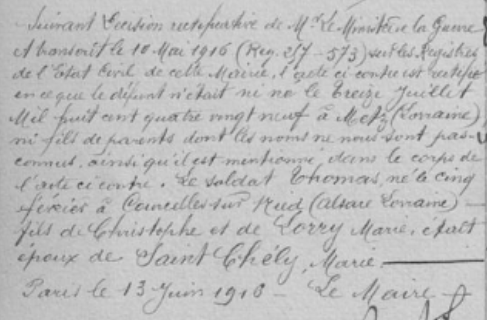 Suivant Décision rectificative de Mr Le Ministre de la Guerre
et transcrit le 10 Mai 1916 (Reg. 217-573) sur les Registres
de l'Etat Civil de cette Mairie, l'acte ci contre est rectifié
en ce que le défunt n'était ni né le treize Juillet
Mil huit cent quatre vingt neuf à Metz (Lorraine)
ni fils de parents dont les noms ne nous sont pas-
connus, ainsi qu'il est mentionné, dans le corps de
l'acte ci contre. Le soldat Thomas, né le cinq
février à Courcelles sur Nied (alsace Lorraine) —
fils de Christophe et de Lorry Marie, était
époux de Saint Chély, Marie. —
Paris le 13 Juin 1916 — Le Maire